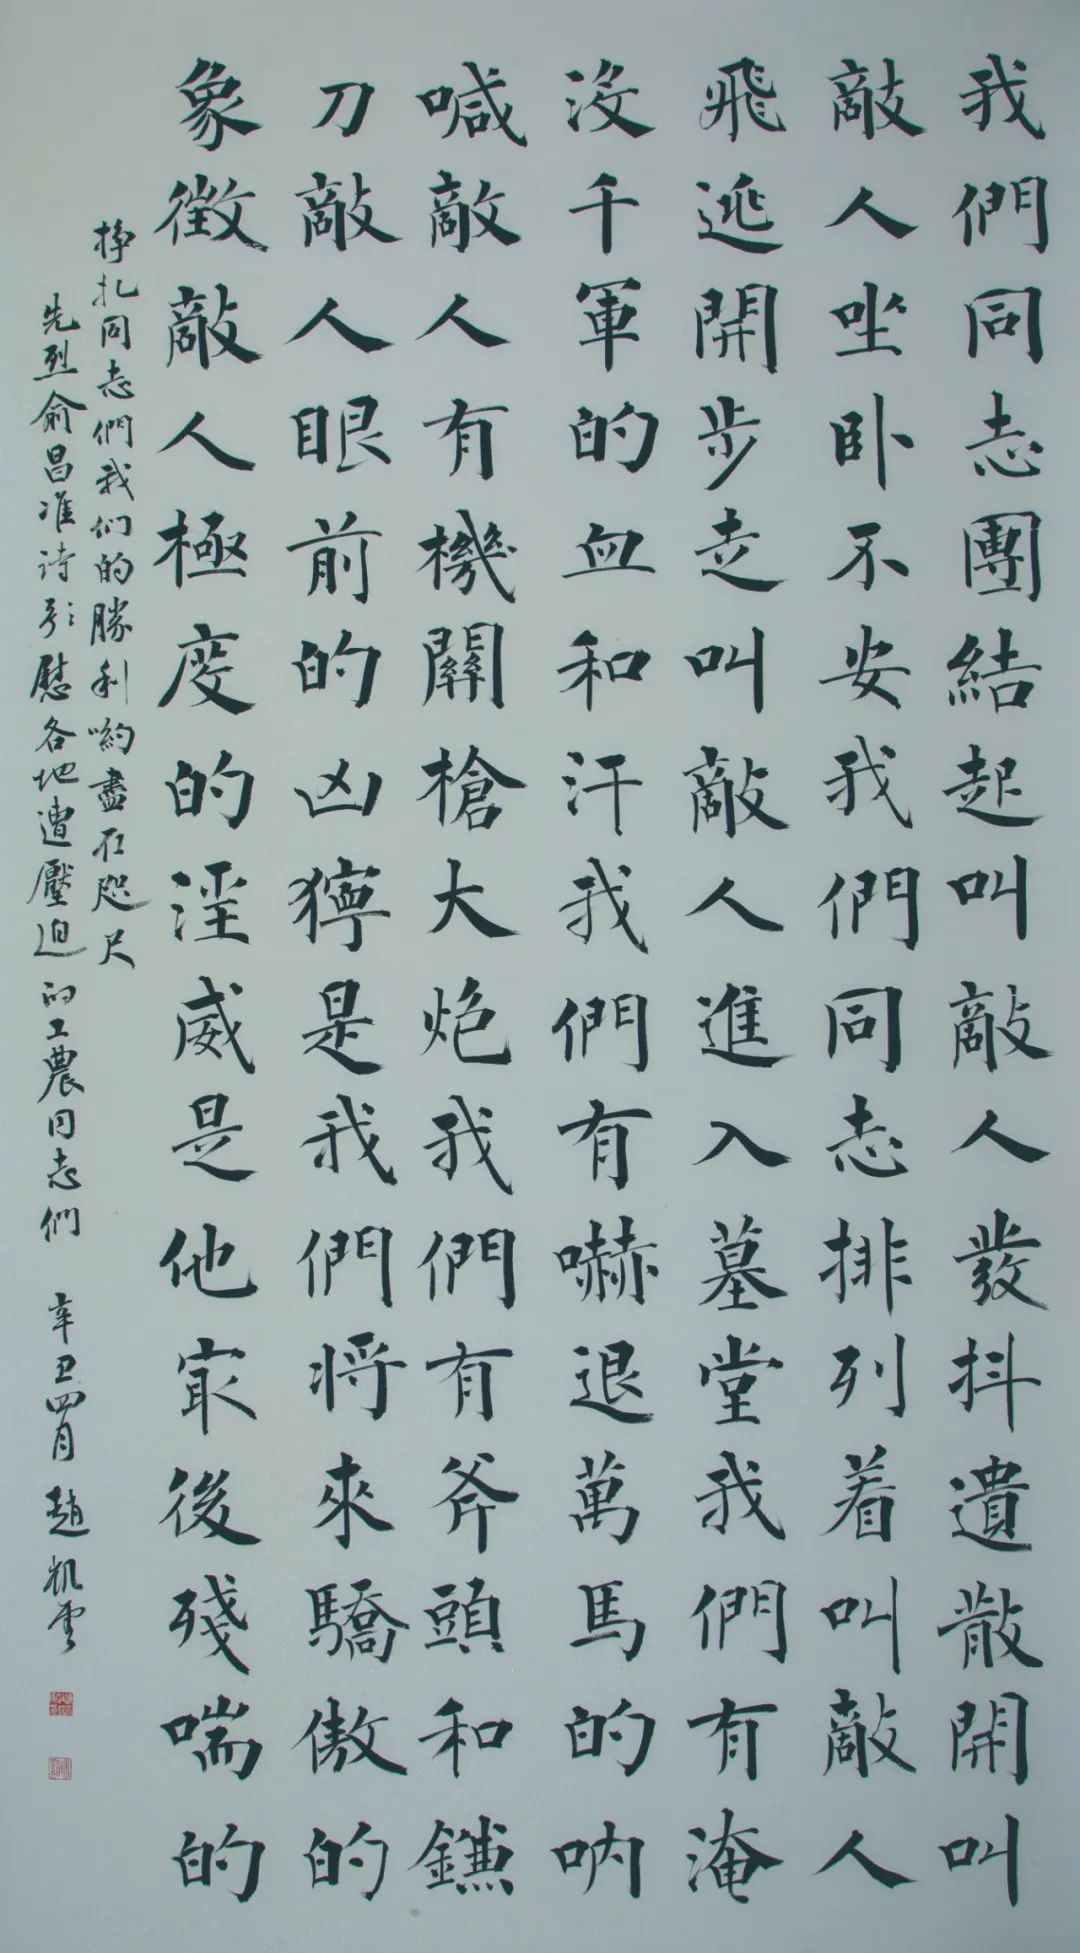 我們同志團結起叫敵人發抖遺散開叫
敵人坐卧不安我們同志排列着叫敵人
飛逃開步走叫敵人進入墓堂我們有淹
没千軍的血和汗我們有嚇退萬馬的吶
喊敵人有機關槍大炮我們有斧頭和鐮
刀敵人眼前的凶獰是我們將來驕傲的
象徵敵人極度的淫威是他冣後殘喘的
掙扎同志們我们的勝利喲盡在咫尺
先烈俞昌准詩慰各地遭壓迫的工農同志們 辛丑四月 趙凱雲